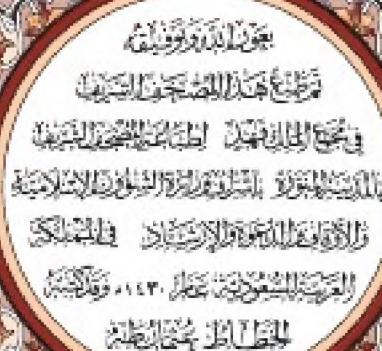 بعون الله وتوفيقه
تم طبع هذا المصحف الشريف
في مجمع الملك فهد لطباعة المصحف الشريف
بالمدينة المنورة بإشراف وزارة الشؤون الإسلامية
والأوقاف والدعوة والإرشاد في المملكة
العربية السعودية عام ١٤٣٠هـ وقد كتبه
الخطاط عثمان طه